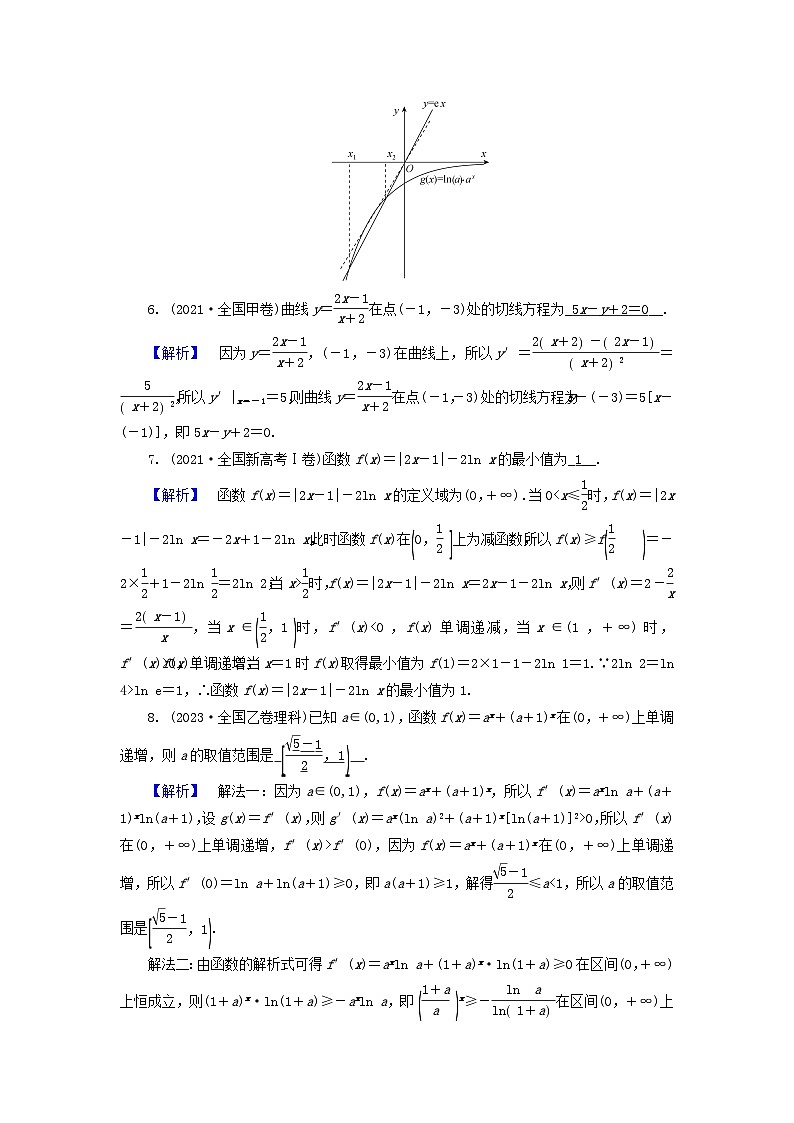 y=ex
y
x₁ x₂ x
O
g(x)=ln(a)·aˣ
6. (2021·全国甲卷)曲线 y=\frac{2x-1}{x+2}在点(-1,-3)处的切线方程为 5x-y+2=0 .
【解析】 因为 y=\frac{2x-1}{x+2},(-1,-3)在曲线上,所以 y′=\frac{2(x+2)-(2x-1)}{(x+2)²}=
\frac{5}{(x+2)²},所以 y′|ₓ₌₋₁=5,则曲线 y=\frac{2x-1}{x+2}在点(-1,-3)处的切线方程为 y-(-3)=5[x-
(-1)],即 5x-y+2=0.
7. (2021·全国新高考Ⅰ卷)函数 f(x)=|2x-1|-2ln x 的最小值为 1 .
【解析】 函数 f(x)=|2x-1|-2ln x 的定义域为(0,+∞).当 0<x≤\frac{1}{2}时,f(x)=|2x
-1|-2ln x=-2x+1-2ln x,此时函数 f(x)在(0,\frac{1}{2}]上为减函数,所以 f(x)≥f(\frac{1}{2})=-
2×\frac{1}{2}+1-2ln \frac{1}{2}=2ln 2;当 x>\frac{1}{2}时,f(x)=|2x-1|-2ln x=2x-1-2ln x,则 f′(x)=2-\frac{2}{x}
=\frac{2(x-1)}{x},当 x∈(\frac{1}{2},1)时,f′(x)<0,f(x)单调递减,当 x∈(1,+∞)时,
f′(x)>0,f(x)单调递增,当 x=1 时 f(x)取得最小值为 f(1)=2×1-1-2ln 1=1.∵2ln 2=ln
4>ln e=1,∴函数 f(x)=|2x-1|-2ln x 的最小值为 1.
8. (2023·全国乙卷理科)已知 a∈(0,1),函数 f(x)=aˣ+(a+1)ˣ在(0,+∞)上单调
递增,则 a 的取值范围是 [\frac{√5-1}{2},1) .
【解析】 解法一:因为 a∈(0,1),f(x)=aˣ+(a+1)ˣ,所以 f′(x)=aˣln a+(a+
1)ˣln(a+1),设 g(x)=f′(x),则 g′(x)=aˣ(ln a)²+(a+1)ˣ[ln(a+1)]²>0,所以 f′(x)
在(0,+∞)上单调递增,f′(x)>f′(0),因为 f(x)=aˣ+(a+1)ˣ在(0,+∞)上单调递
增,所以 f′(0)=ln a+ln(a+1)≥0,即 a(a+1)≥1,解得\frac{√5-1}{2}≤a<1,所以 a 的取值范
围是[\frac{√5-1}{2},1).
解法二:由函数的解析式可得 f′(x)=aˣln a+(1+a)ˣ·ln(1+a)≥0 在区间(0,+∞)
上恒成立,则(1+a)ˣ·ln(1+a)≥-aˣln a,即(\frac{1+a}{a})ˣ≥-\frac{ln a}{ln(1+a)}在区间(0,+∞)上